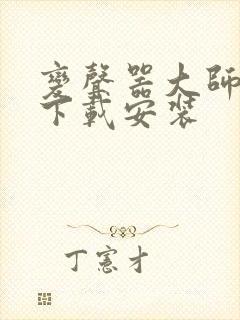 變聲器大師
下載安裝
丁憲才